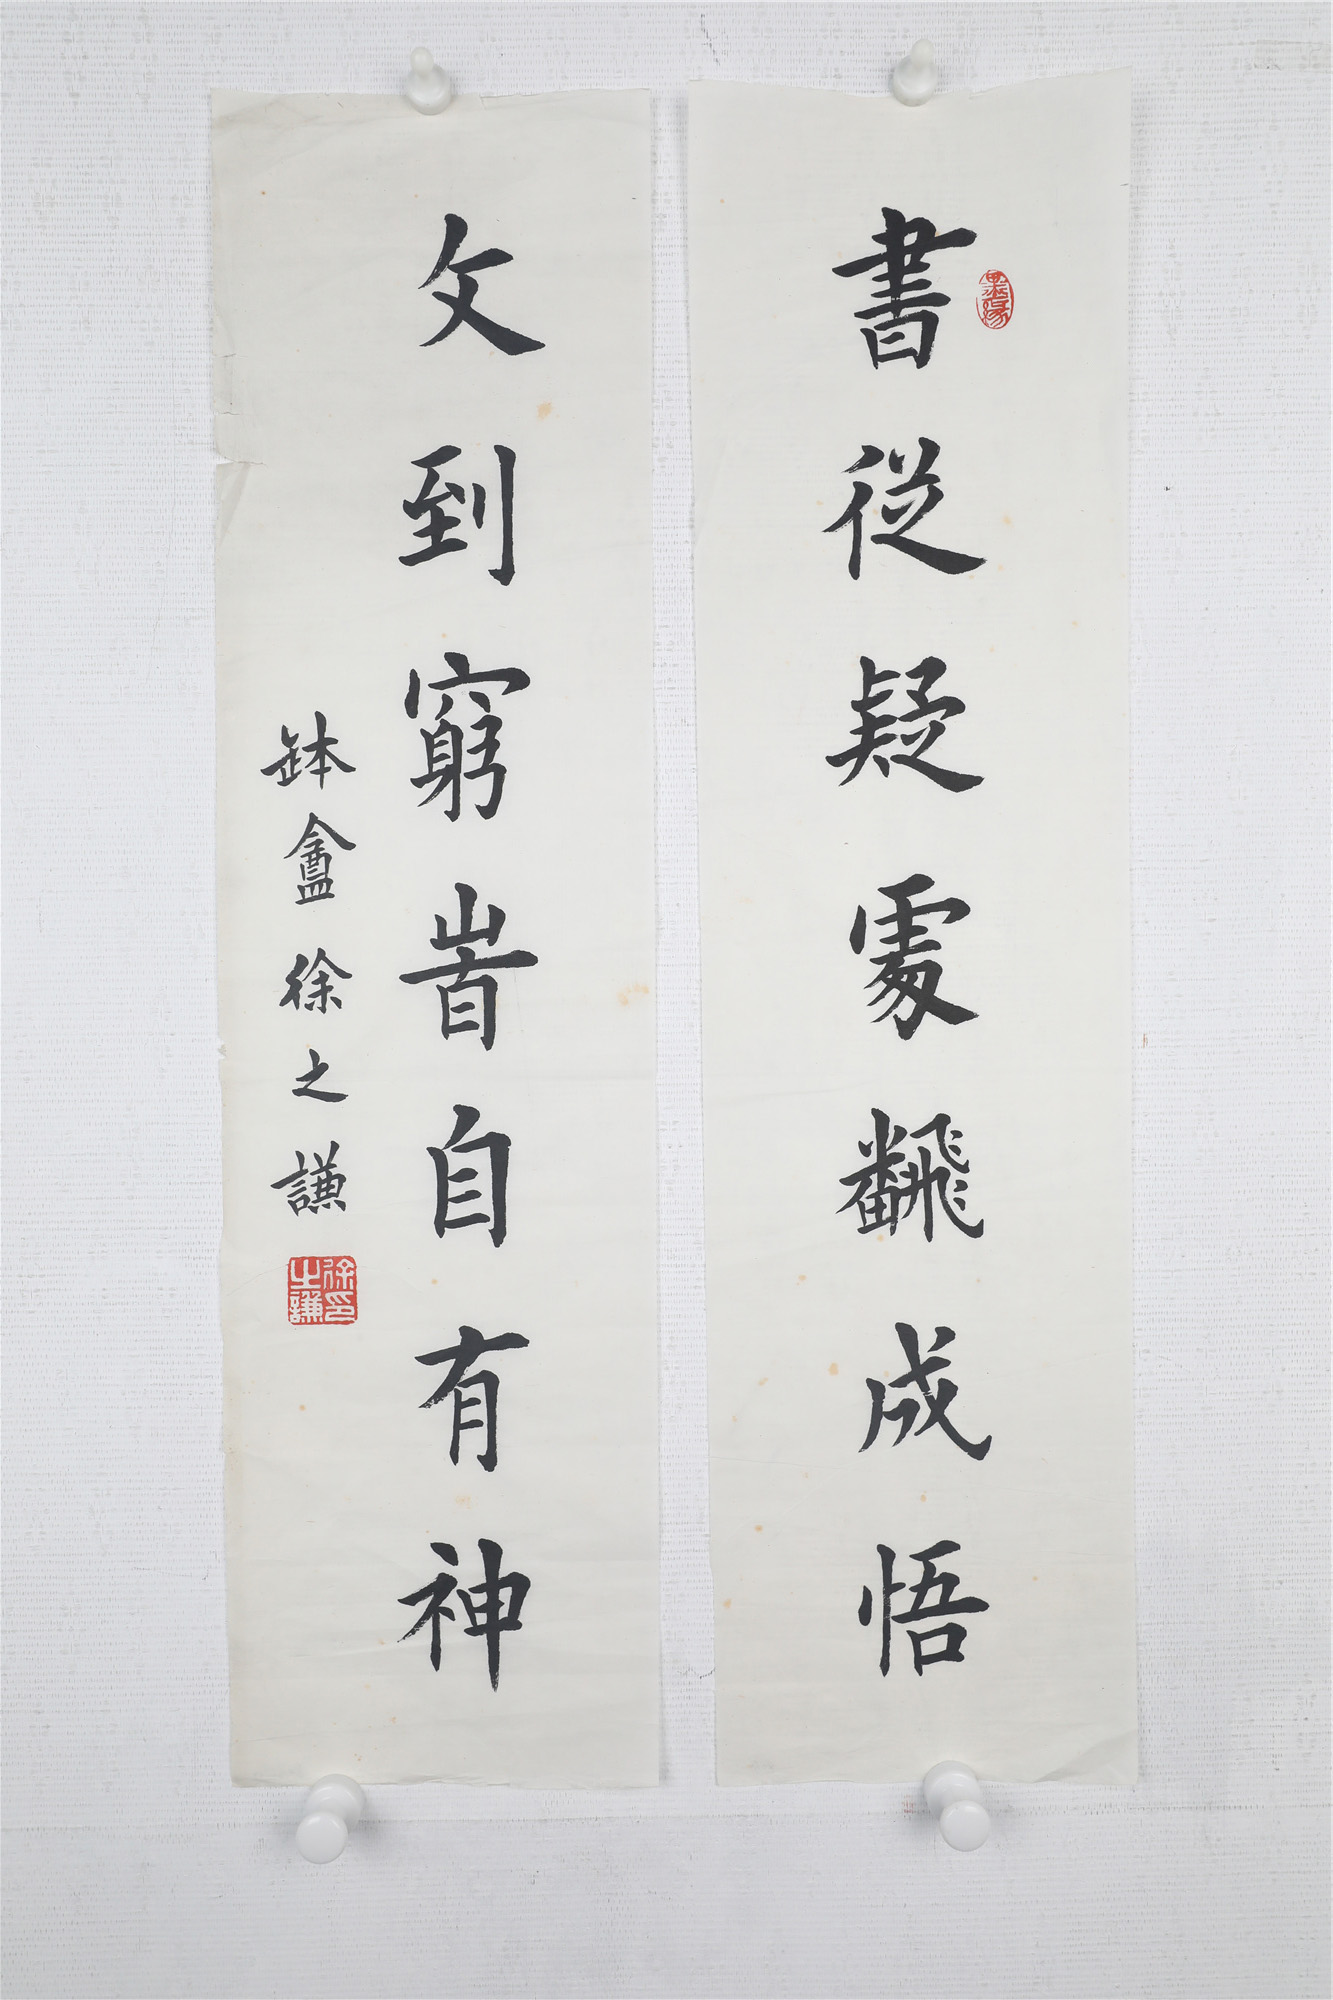 書從疑處飜成悟
墨緣
文到窮旹自有神
缽盦徐之謙
徐印之謙